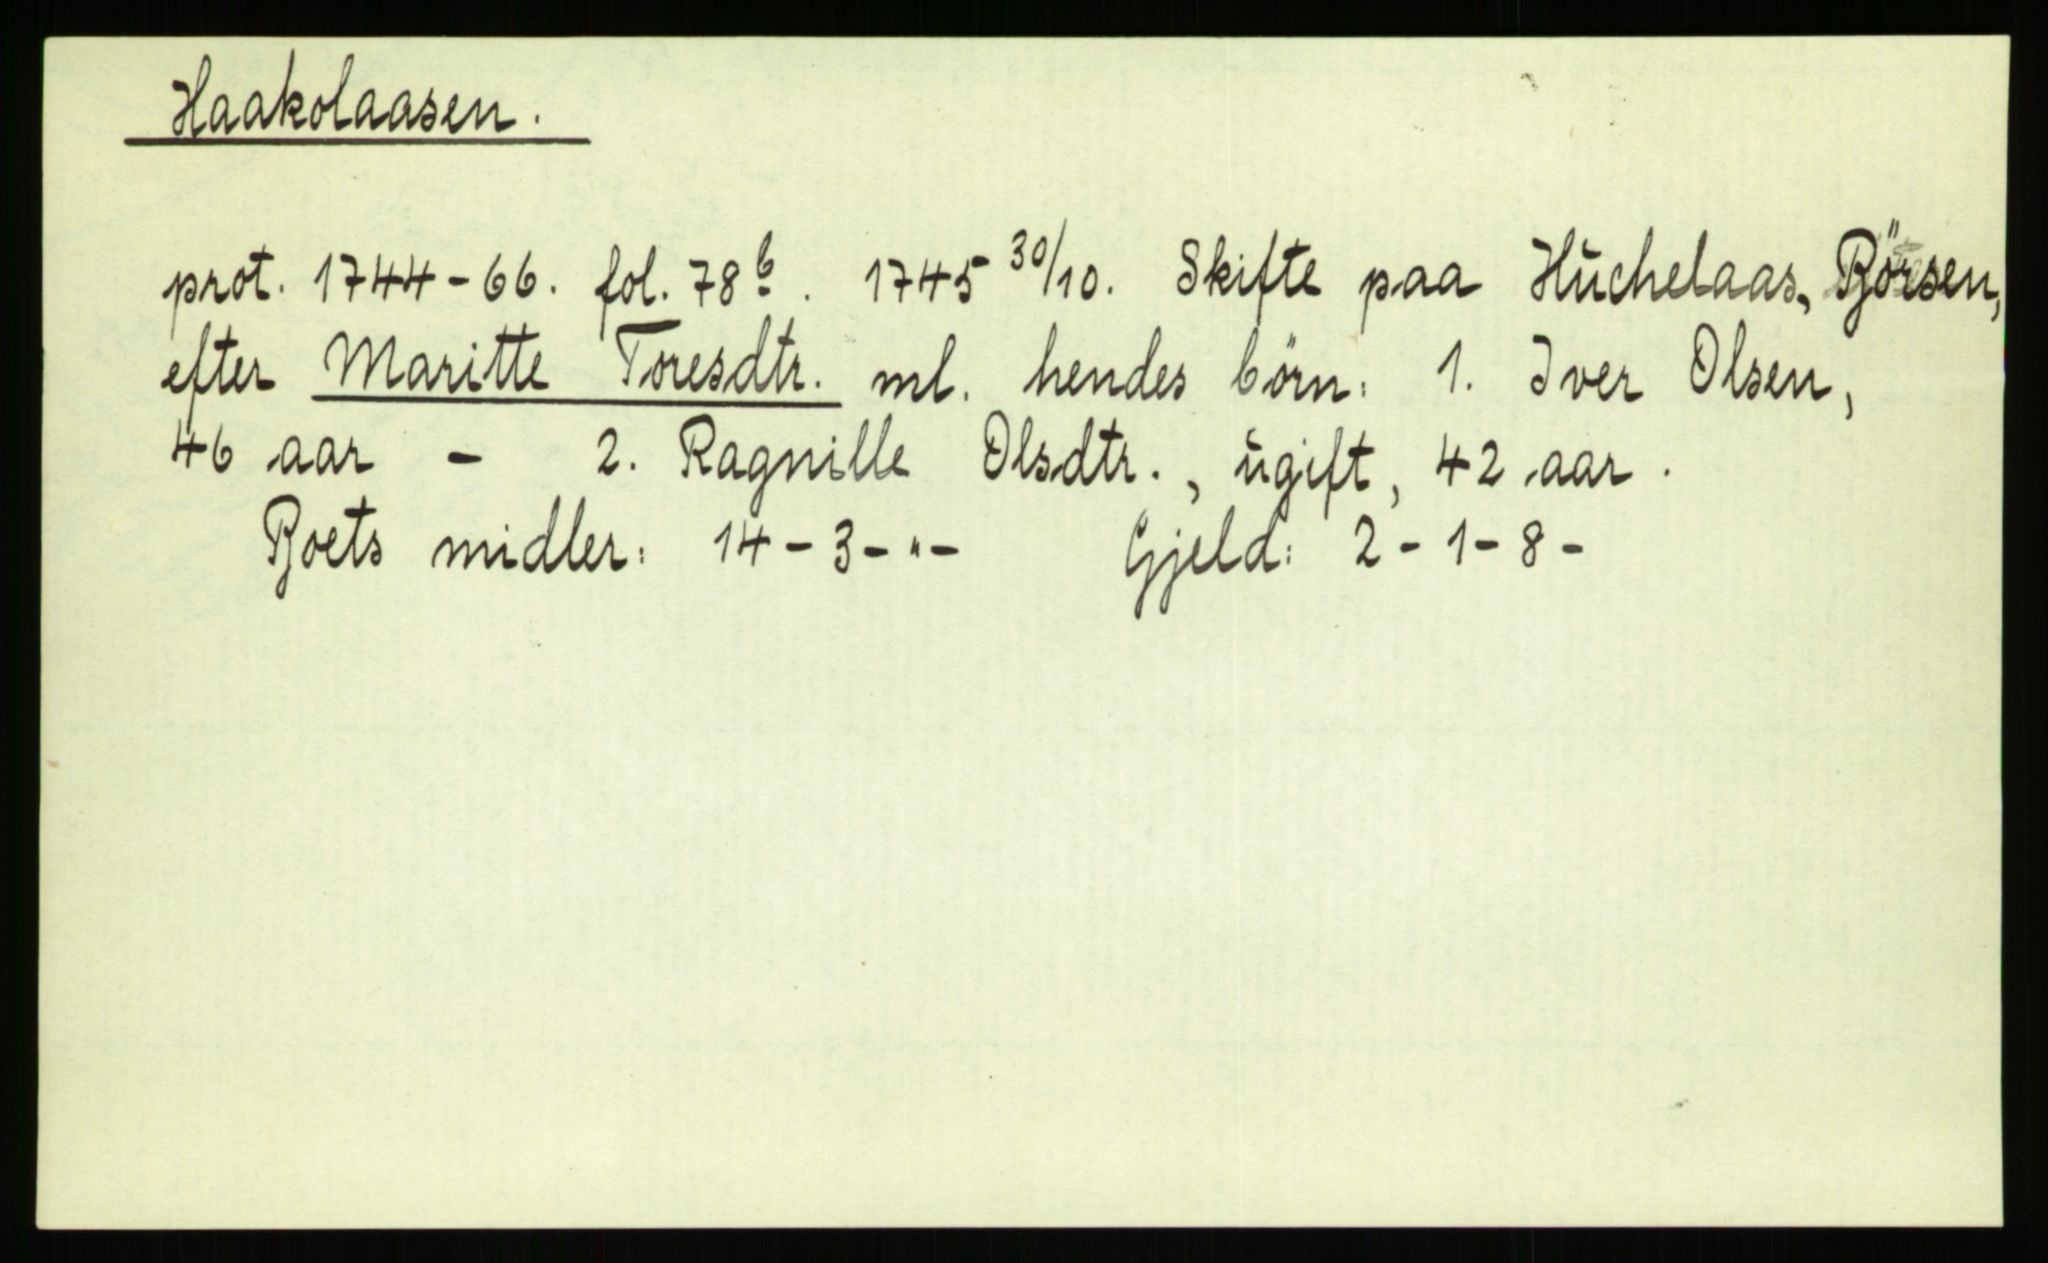 Haakolaasen.
prot. 1744-66. fol. 78b. 1745 30/10. Skifte paa Huchelaas, Börsen,
efter Maritte Toresdtr. ml. hendes börn: 1. Iver Olsen,
46 aar - 2. Ragnille Olsdtr., ugift, 42 aar.
Boets midler: 14-3-"- Gjeld: 2-1-8-